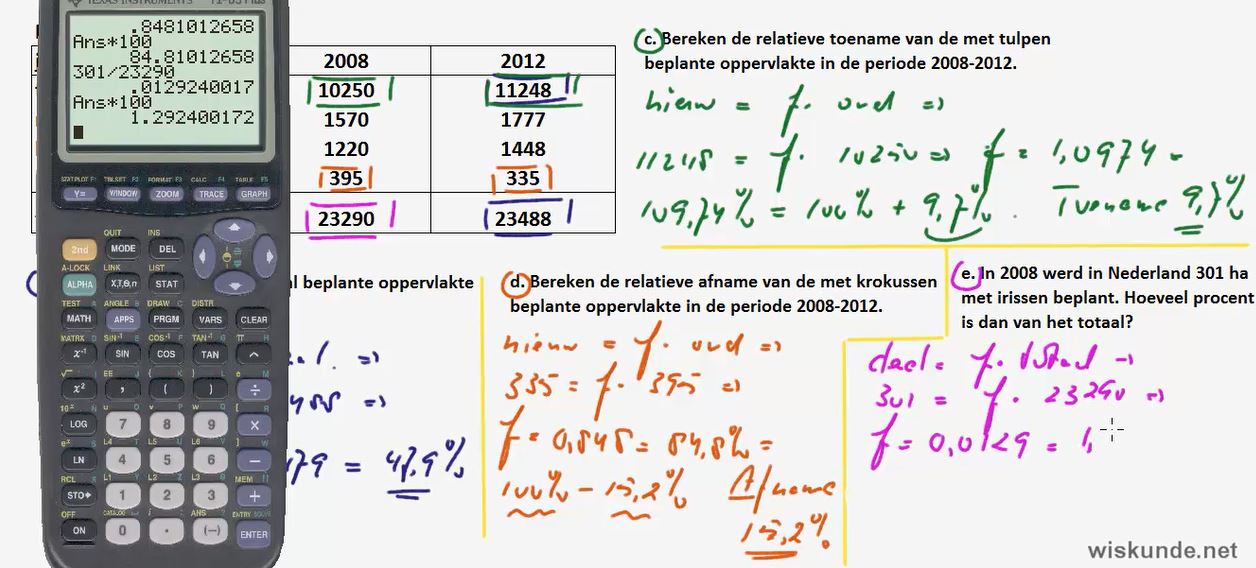 TEXAS INSTRUMENTS TI-83 Plus
.8481012658
Ans*100
84.81012658
301/23290
.0129240017
Ans*100
1.292400172
STAT PLOT F1 TBLSET F2 FORMAT F3 CALC F4 TABLE F5
Y= WINDOW ZOOM TRACE GRAPH
QUIT INS
2nd MODE DEL
A-LOCK LINK LIST
ALPHA X,T,θ,n STAT
TEST A ANGLE B DRAW C DISTR
MATH APPS PRGM VARS CLEAR
MATRX D SIN⁻¹ E COS⁻¹ F TAN⁻¹ G π H
x⁻¹ SIN COS TAN ^
√ I EE J { K } L e M
x² , ( ) ÷
10ˣ N u O v P w Q [ R
LOG 7 8 9 ×
eˣ S L4 T L5 U L6 V ] W
LN 4 5 6 −
RCL X L1 Y L2 Z L3 θ MEM "
STO▸ 1 2 3 +
OFF CATALOG i : ANS ? ENTRY SOLVE
ON 0 . (−) ENTER
2008 2012
10250 11248
1570 1777
1220 1448
395 335
23290 23488
c. Bereken de relatieve toename van de met tulpen
beplante oppervlakte in de periode 2008-2012.
nieuw = f · oud =>
11248 = f · 10250 => f = 1,0974 =
109,74% = 100% + 9,7%. Toename 9,7%
l beplante oppervlakte
=>
488 =>
479 = 47,9%
d. Bereken de relatieve afname van de met krokussen
beplante oppervlakte in de periode 2008-2012.
nieuw = f · oud =>
335 = f · 395 =>
f = 0,848 = 84,8% =
100% - 15,2% Afname
15,2%
e. In 2008 werd in Nederland 301 ha
met irissen beplant. Hoeveel procent
is dan van het totaal?
deel = f · totaal =>
301 = f · 23290 =>
f = 0,0129 = 1,
wiskunde.net